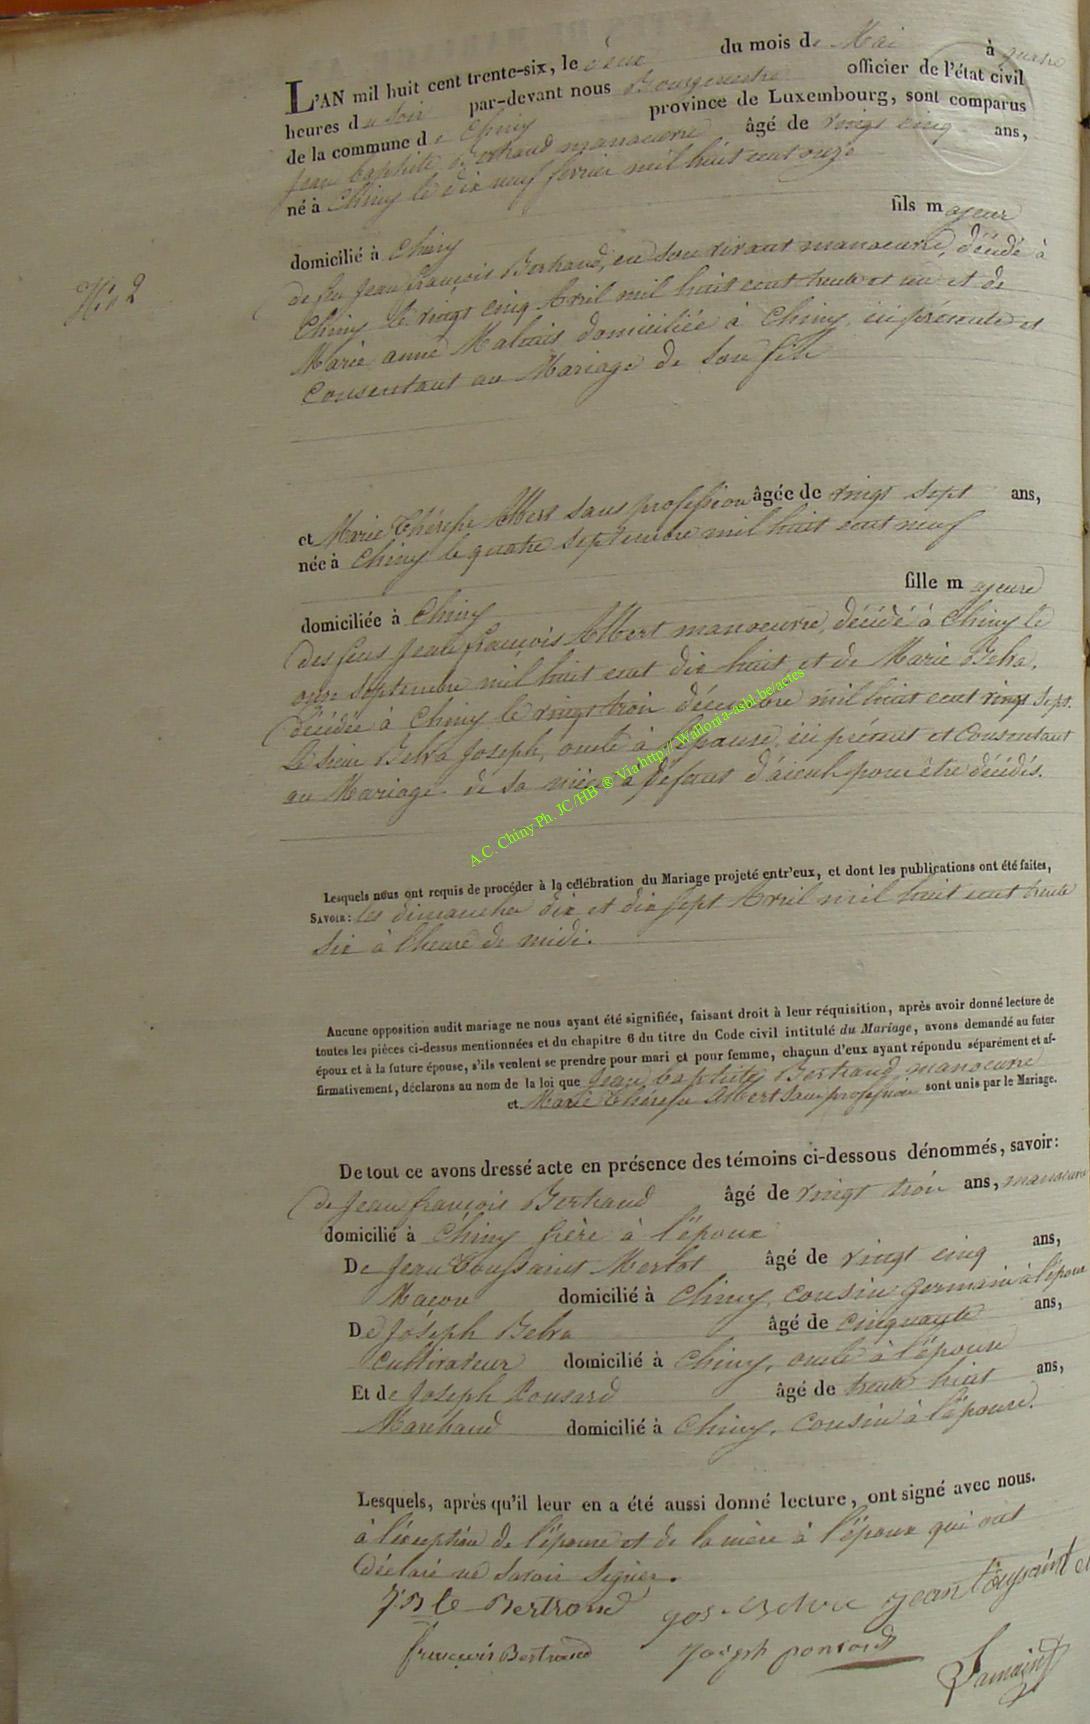 L'AN mil huit cent trente-six, le deux du mois de Mai à quatre
heures du soir par-devant nous Bourgmestre officier de l'état civil
de la commune de Chiny province de Luxembourg, sont comparus
Jean baptiste Bertrand manoeuvre âgé de vingt cinq ans,
né à Chiny le dix neuf fevrier mil huit cent onze
fils majeur
domicilié à Chiny
de feu Jean françois Bertrand, en son vivant manoeuvre, décédé à
Chiny le vingt cinq Avril mil huit cent trente et un et de
N.º 2
Marie anne domiciliée à Chiny, ici présente et
Consentant au Mariage de son fils
et Marie Thérèse Albert sans profession âgée de vingt sept ans,
née à Chiny le quatre septembre mil huit cent neuf
fille majeure
domiciliée à Chiny
des feus Jean françois Albert manoeuvre, décédé à Chiny le
onze septembre mil huit cent dix huit et de Marie Belva,
décédée à Chiny le vingt trois décembre mil huit cent vingt sept.
Le sieur Belva Joseph, oncle à l'épouse, ici présent et Consentant
au Mariage de sa nièce à défaut d'aieul pour être décédés.
A.C. Chiny Ph. JC /HB ® Via http://Wallonia-asbl.be/actes
Lesquels nous ont requis de procéder à la célébration du Mariage projeté entr'eux, et dont les publications ont été faites,
SAVOIR: les dimanches dix et dix sept Avril mil huit cent trente
six à l'heure de midi.
Aucune opposition audit mariage ne nous ayant été signifiée, faisant droit à leur réquisition, après avoir donné lecture de
toutes les pièces ci-dessus mentionnées et du chapitre 6 du titre du Code civil intitulé du Mariage, avons demandé au futur
époux et à la future épouse, s'ils veulent se prendre pour mari et pour femme, chacun d'eux ayant répondu séparément et af-
firmativement, déclarons au nom de la loi que Jean baptiste Bertrand manoeuvre
et Marie Thérèse Albert sans profession sont unis par le Mariage.
De tout ce avons dressé acte en présence des témoins ci-dessous dénommés, savoir:
de Jean françois Bertrand âgé de vingt trois ans, manoeuvre
domicilié à Chiny frère à l'époux
De Jean Toussaint Merlot âgé de vingt cinq ans,
Macon domicilié à Chiny, cousin germain à l'époux
De Joseph Belva âgé de cinquante ans,
Cultivateur domicilié à Chiny, oncle à l'épouse
Et de Joseph Ponsard âgé de trente huit ans,
Marchand domicilié à Chiny, cousin à l'épouse.
Lesquels, après qu'il leur en a été aussi donné lecture, ont signé avec nous.
à l'éxception de l'épouse et de la mère à l'époux qui ont
déclaré ne savoir signer.
J.B te Bertrand jos. Belva jean tousaint
françois Bertrand joseph ponsard